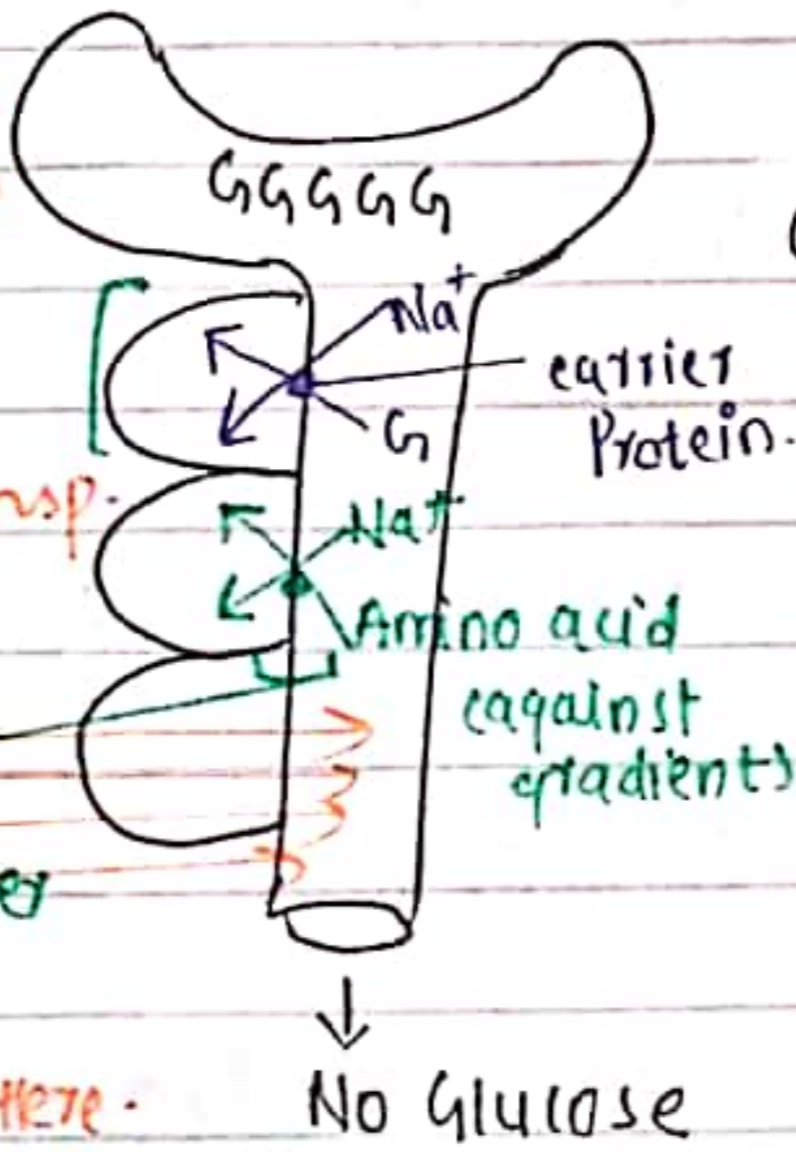 G G G G G
Na+
carrier
Protein.
G
nsp.
Na+
Amino acid
(against
gradients)
er
Here.
No Glucose